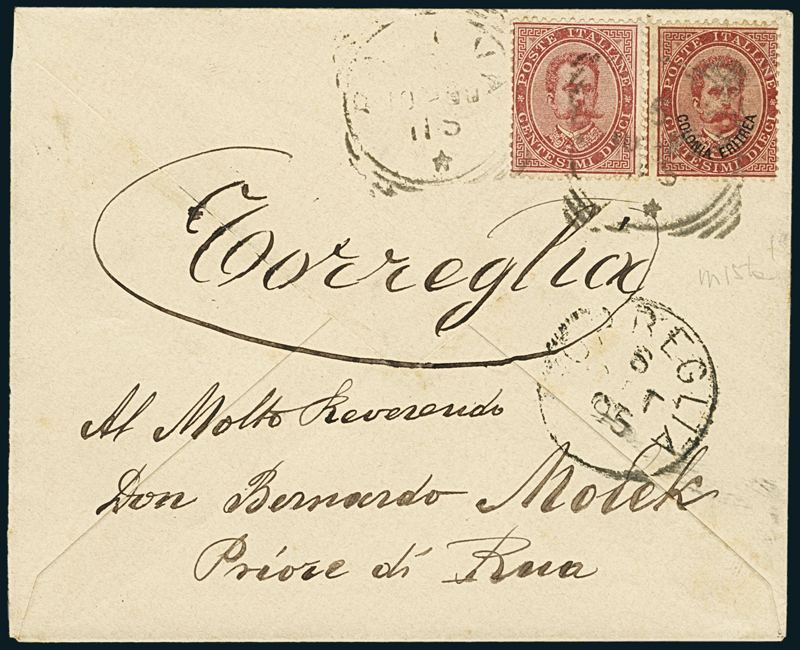 POSTE ITALIANE
CENTESIMI DIECI
POSTE ITALIANE
COLONIA ERITREA
CENTESIMI DIECI
11 S
Torreglia
TORREGLIA
95
Al Molto Reverendo
Don Bernardo Molek
Priore di Rua